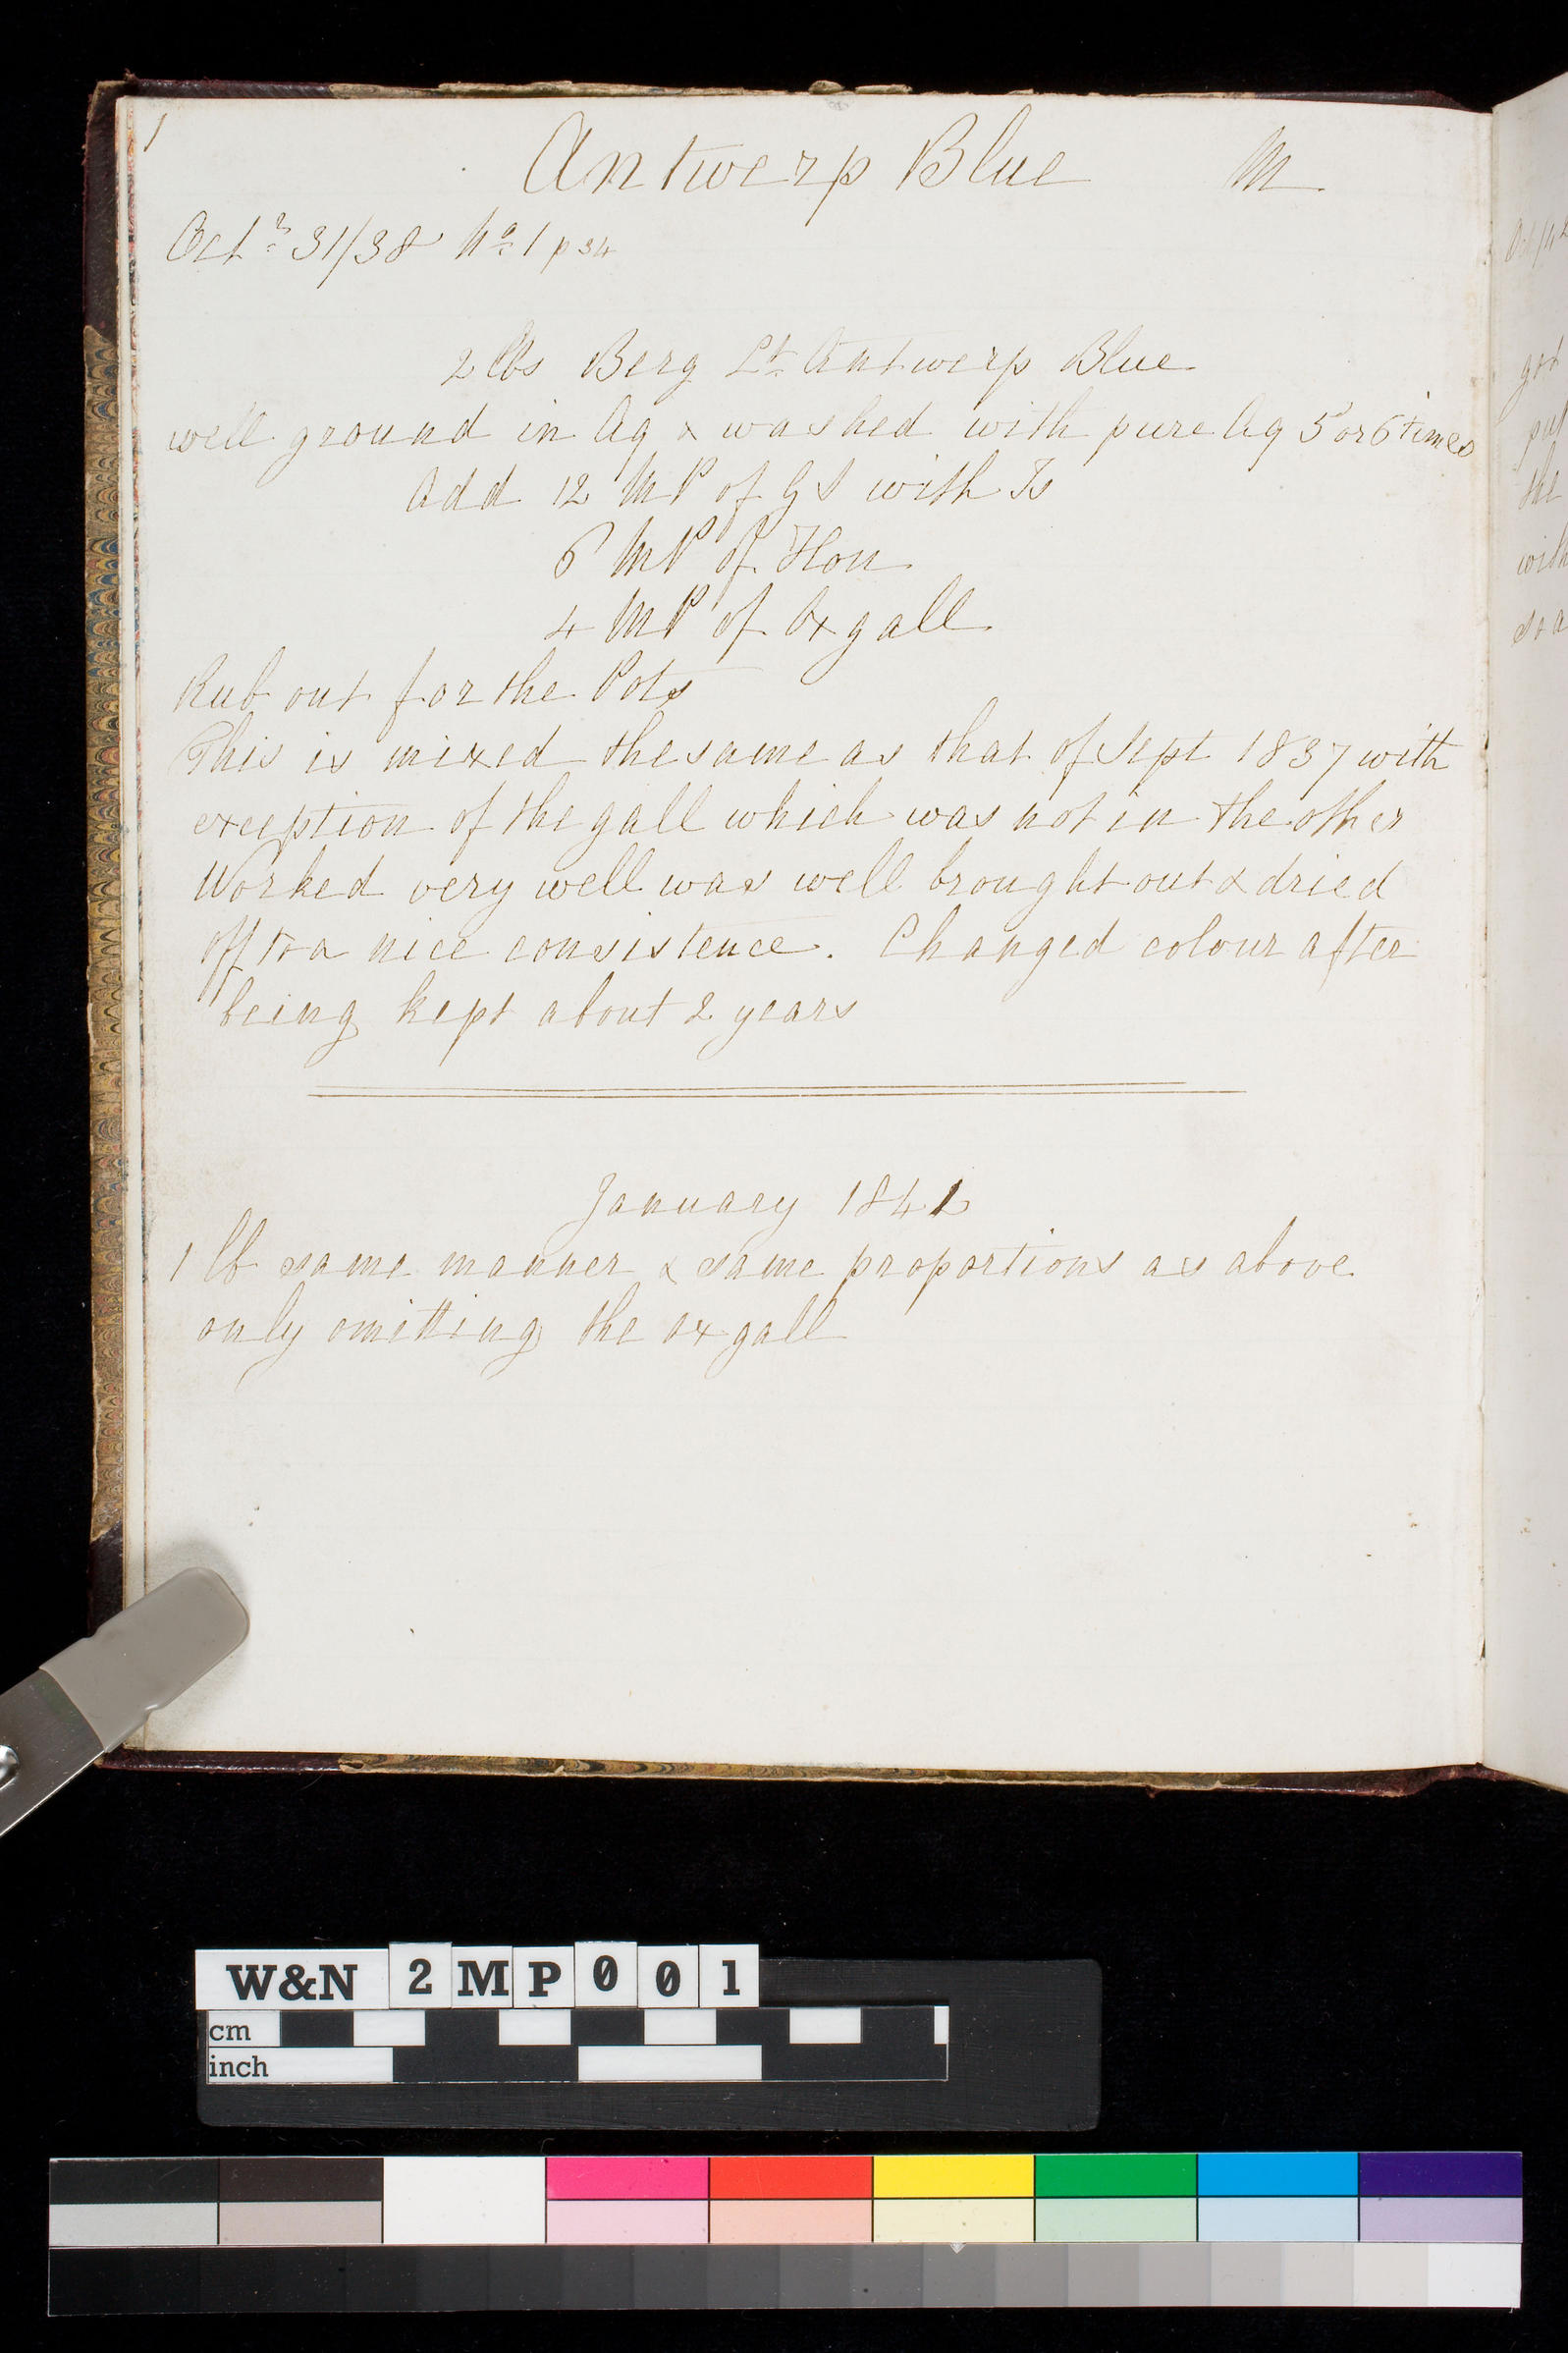 1
Antwerp Blue M
Octr 31/38 No 1 p 34
2 lbs Berg Lt Antwerp Blue
well ground in Aq & washed with pure Aq 5 or 6 times
Add 12 MP of GS with Is
6 MP of Hon
4 MP of Oxgall
Rub out for the Pots
This is mixed the same as that of Sept 1837 with
exception of the gall which was not in the other
Worked very well was well brought out & dried
off to a nice consistence. Changed colour after
being kept about 2 years
January 1841
1 lb same manner & same proportions as above
only omitting the oxgall
got
put
the
with
W&N 2MP001
cm
inch